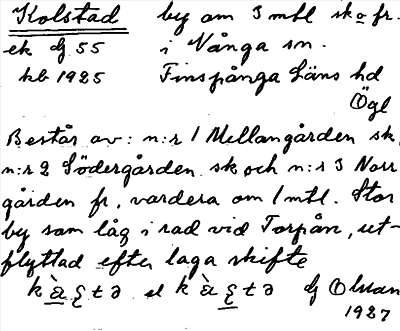 Kolstad by om 3 mtl sk o fr.
ek dj 55 i Vånga sn.
kb 1925 Finspånga läns hd
Ögl
Består av: n:r 1 Mellangården sk,
n:r 2 Södergården sk och n:r 3 Norr
gården fr, vardera om 1 mtl. Stor
by som låg i rad vid Torpån, ut-
flyttad efter laga skifte
el dj
1927